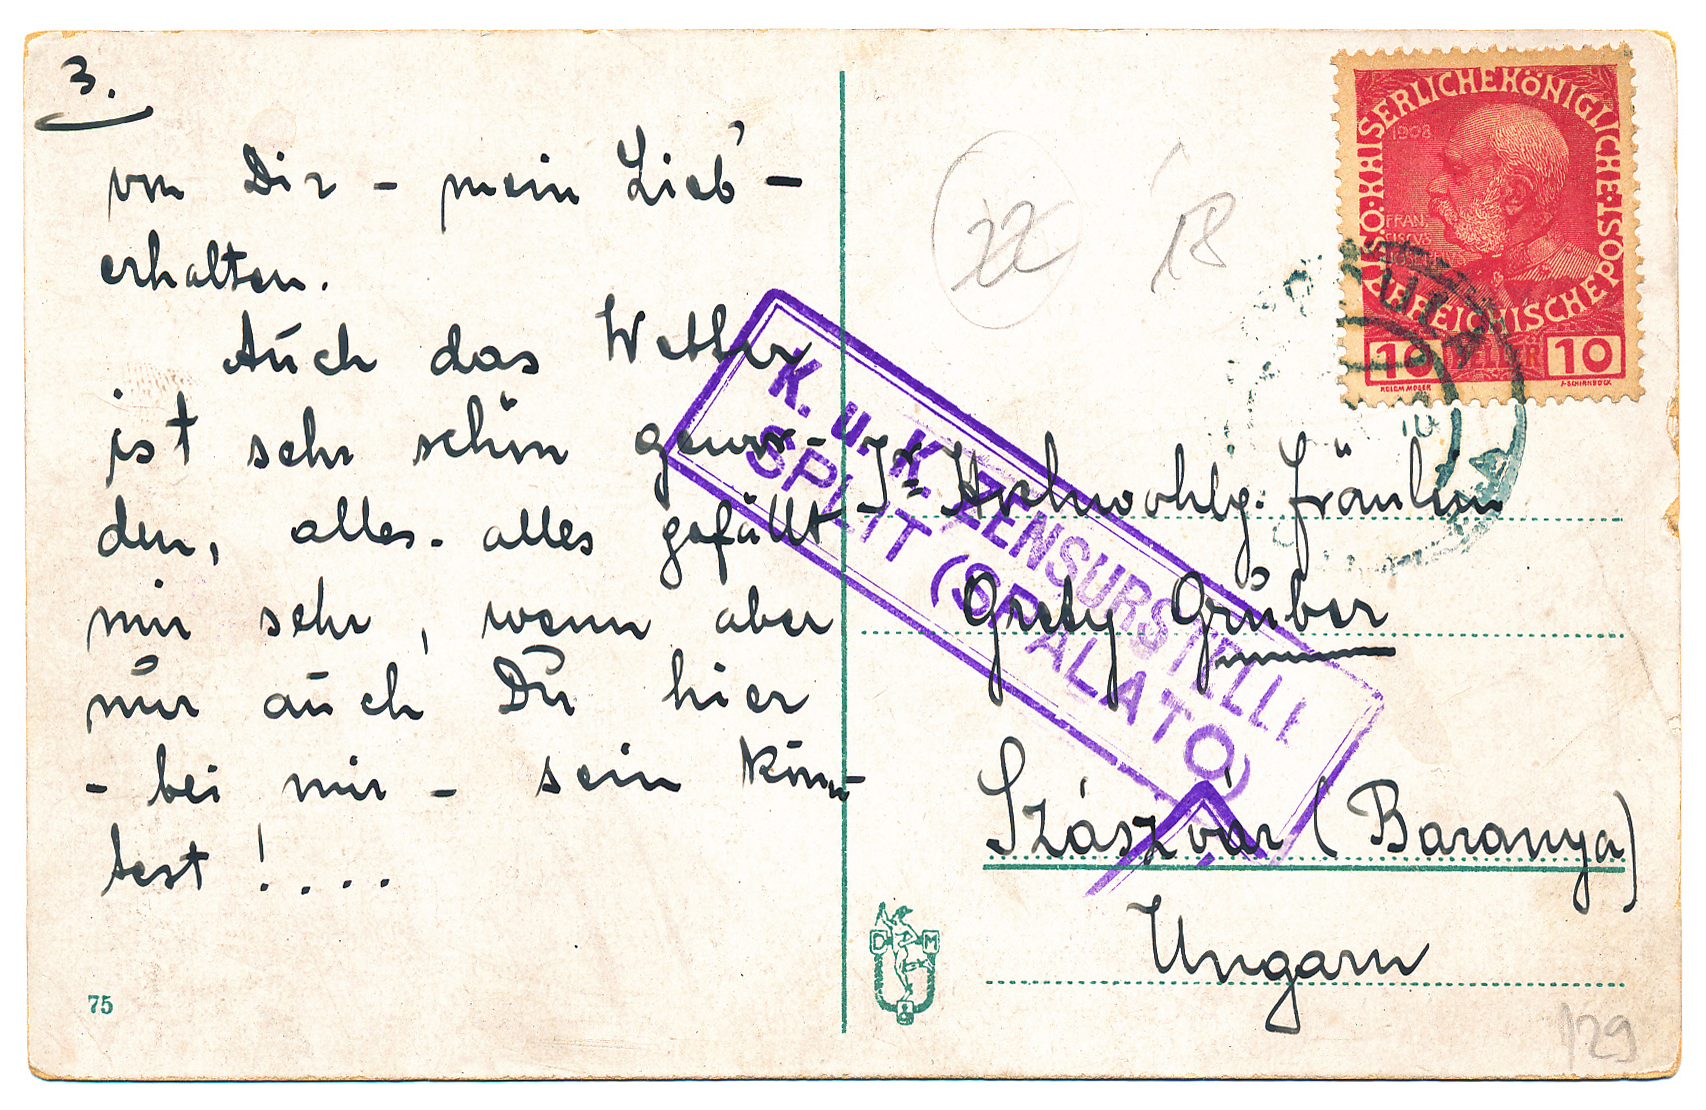 3.
von Dir - mein Lieb' -
erhalten.
Auch das Wetter
ist sehr schön gewor-
den, alles - alles gefällt
mir sehr, wenn aber
nur auch Du hier
- bei mir - sein könn-
test! ....
75
22 '18
K. u. K. ZENSURSTELLE
SPLIT (SPALATO)
KAISERLICHE KÖNIGLICHE ÖSTERREICHISCHE POST
1908
FRAN
CISCVS
10 HELLER 10
KOLOM. MOSER F. SCHIRNBÖCK
Hochwohlg. Fräulein
Grety Gruber
Szászvár (Baranya)
Ungarn
D M
129